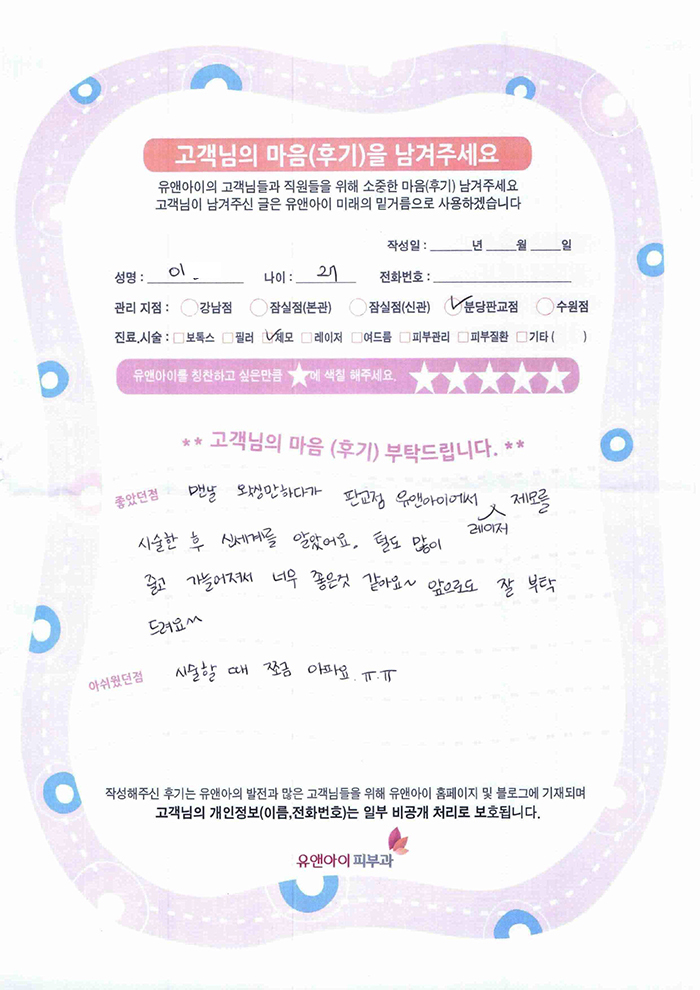 고객님의 마음(후기)을 남겨주세요
유앤아이의 고객님들과 직원들을 위해 소중한 마음(후기) 남겨주세요
고객님이 남겨주신 글은 유앤아이 미래의 밑거름으로 사용하겠습니다
작성일 : ______년 ____월 ____일
성명 : 이 나이 : 27 전화번호 :
관리 지점 : 강남점 잠실점(본관) 잠실점(신관) 분당판교점 수원점
진료.시술 : 보톡스 필러 제모 레이저 여드름 피부관리 피부질환 기타 ( )
유앤아이를 칭찬하고 싶은만큼 ★에 색칠 해주세요. ★★★★★
** 고객님의 마음 (후기) 부탁드립니다. **
좋았던점 맨날 왁싱만하다가 판교점 유앤아이에서 레이저 제모를
시술한 후 신세계를 알았어요. 털도 많이
줄고 가늘어져서 너무 좋은것 같아요~ 앞으로도 잘 부탁
드려요~
아쉬웠던점 시술할 때 쪼금 아파요.ㅠ.ㅠ
작성해주신 후기는 유앤아의 발전과 많은 고객님들을 위해 유앤아이 홈페이지 및 블로그에 기재되며
고객님의 개인정보(이름,전화번호)는 일부 비공개 처리로 보호됩니다.
유앤아이피부과